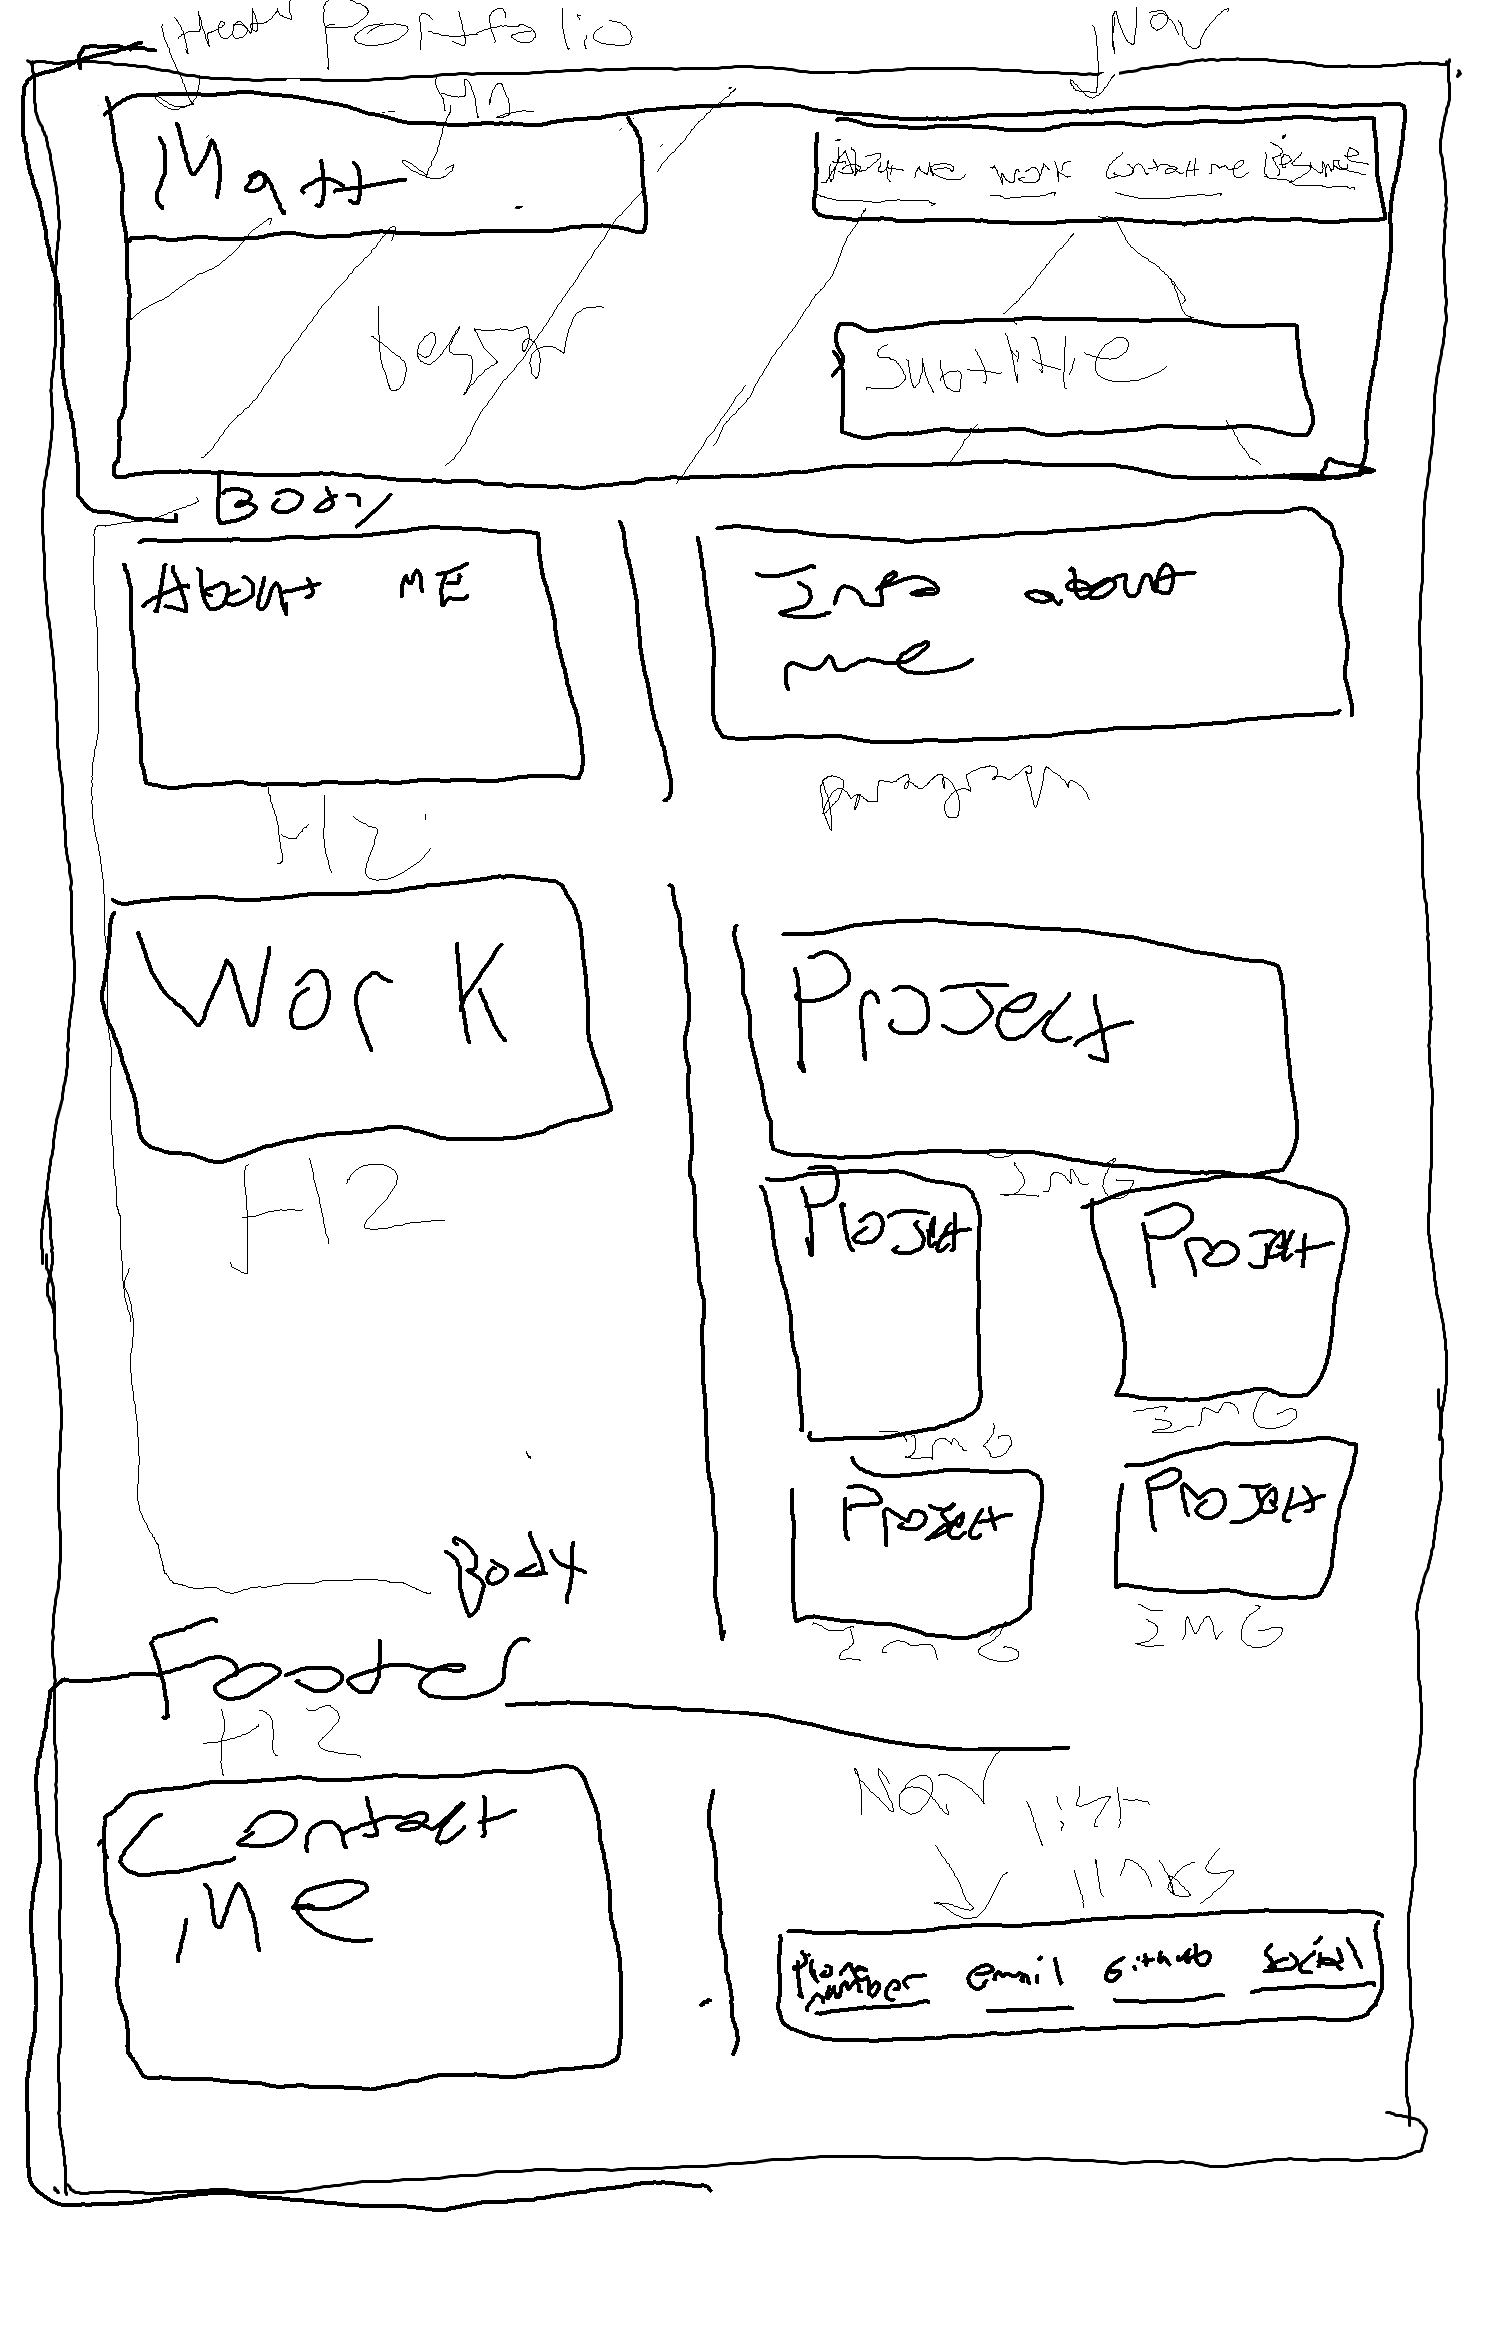 Header Portfolio
Nav
H1
Matt
About me work contact me Resume
Design
Subtitle
Body
About ME
Info about
me
H2
paragraph
Work
Project
H2
IMG
Project
Project
IMG
IMG
Project
Project
Body
IMG
IMG
Footer
H2
Nav
list
links
Contact
Me
Phone
number email Github social